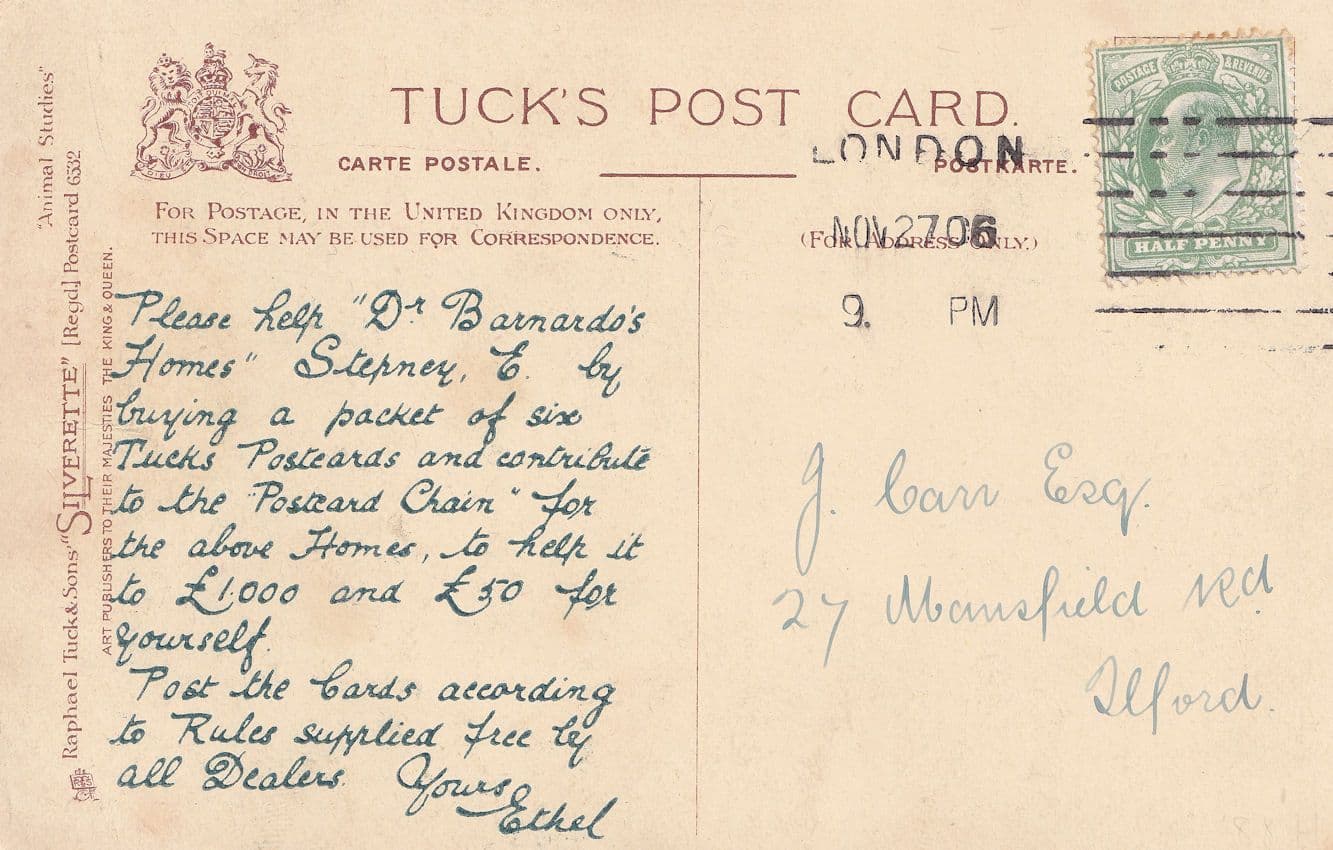 TUCK'S POST CARD.
CARTE POSTALE.
POSTKARTE.
FOR POSTAGE, IN THE UNITED KINGDOM ONLY,
THIS SPACE MAY BE USED FOR CORRESPONDENCE.
(FOR ADDRESS ONLY.)
LONDON
NOV 27 06
9. PM
POSTAGE & REVENUE
HALF PENNY
"Animal Studies"
Raphael Tuck & Sons' "SILVERETTE" [Regd.] Postcard 6532
ART PUBLISHERS TO THEIR MAJESTIES THE KING & QUEEN.
Please help "Dr Barnardo's
Homes" Stepney, E. by
buying a packet of six
Tucks Postcards and contribute
to the "Postcard Chain" for
the above Homes, to help it
to £1.000 and £50 for
yourself.
Post the Cards according
to Rules supplied free by
all Dealers. Yours
Ethel
J. Carr Esq.
27 Mansfield Rd
Ilford.